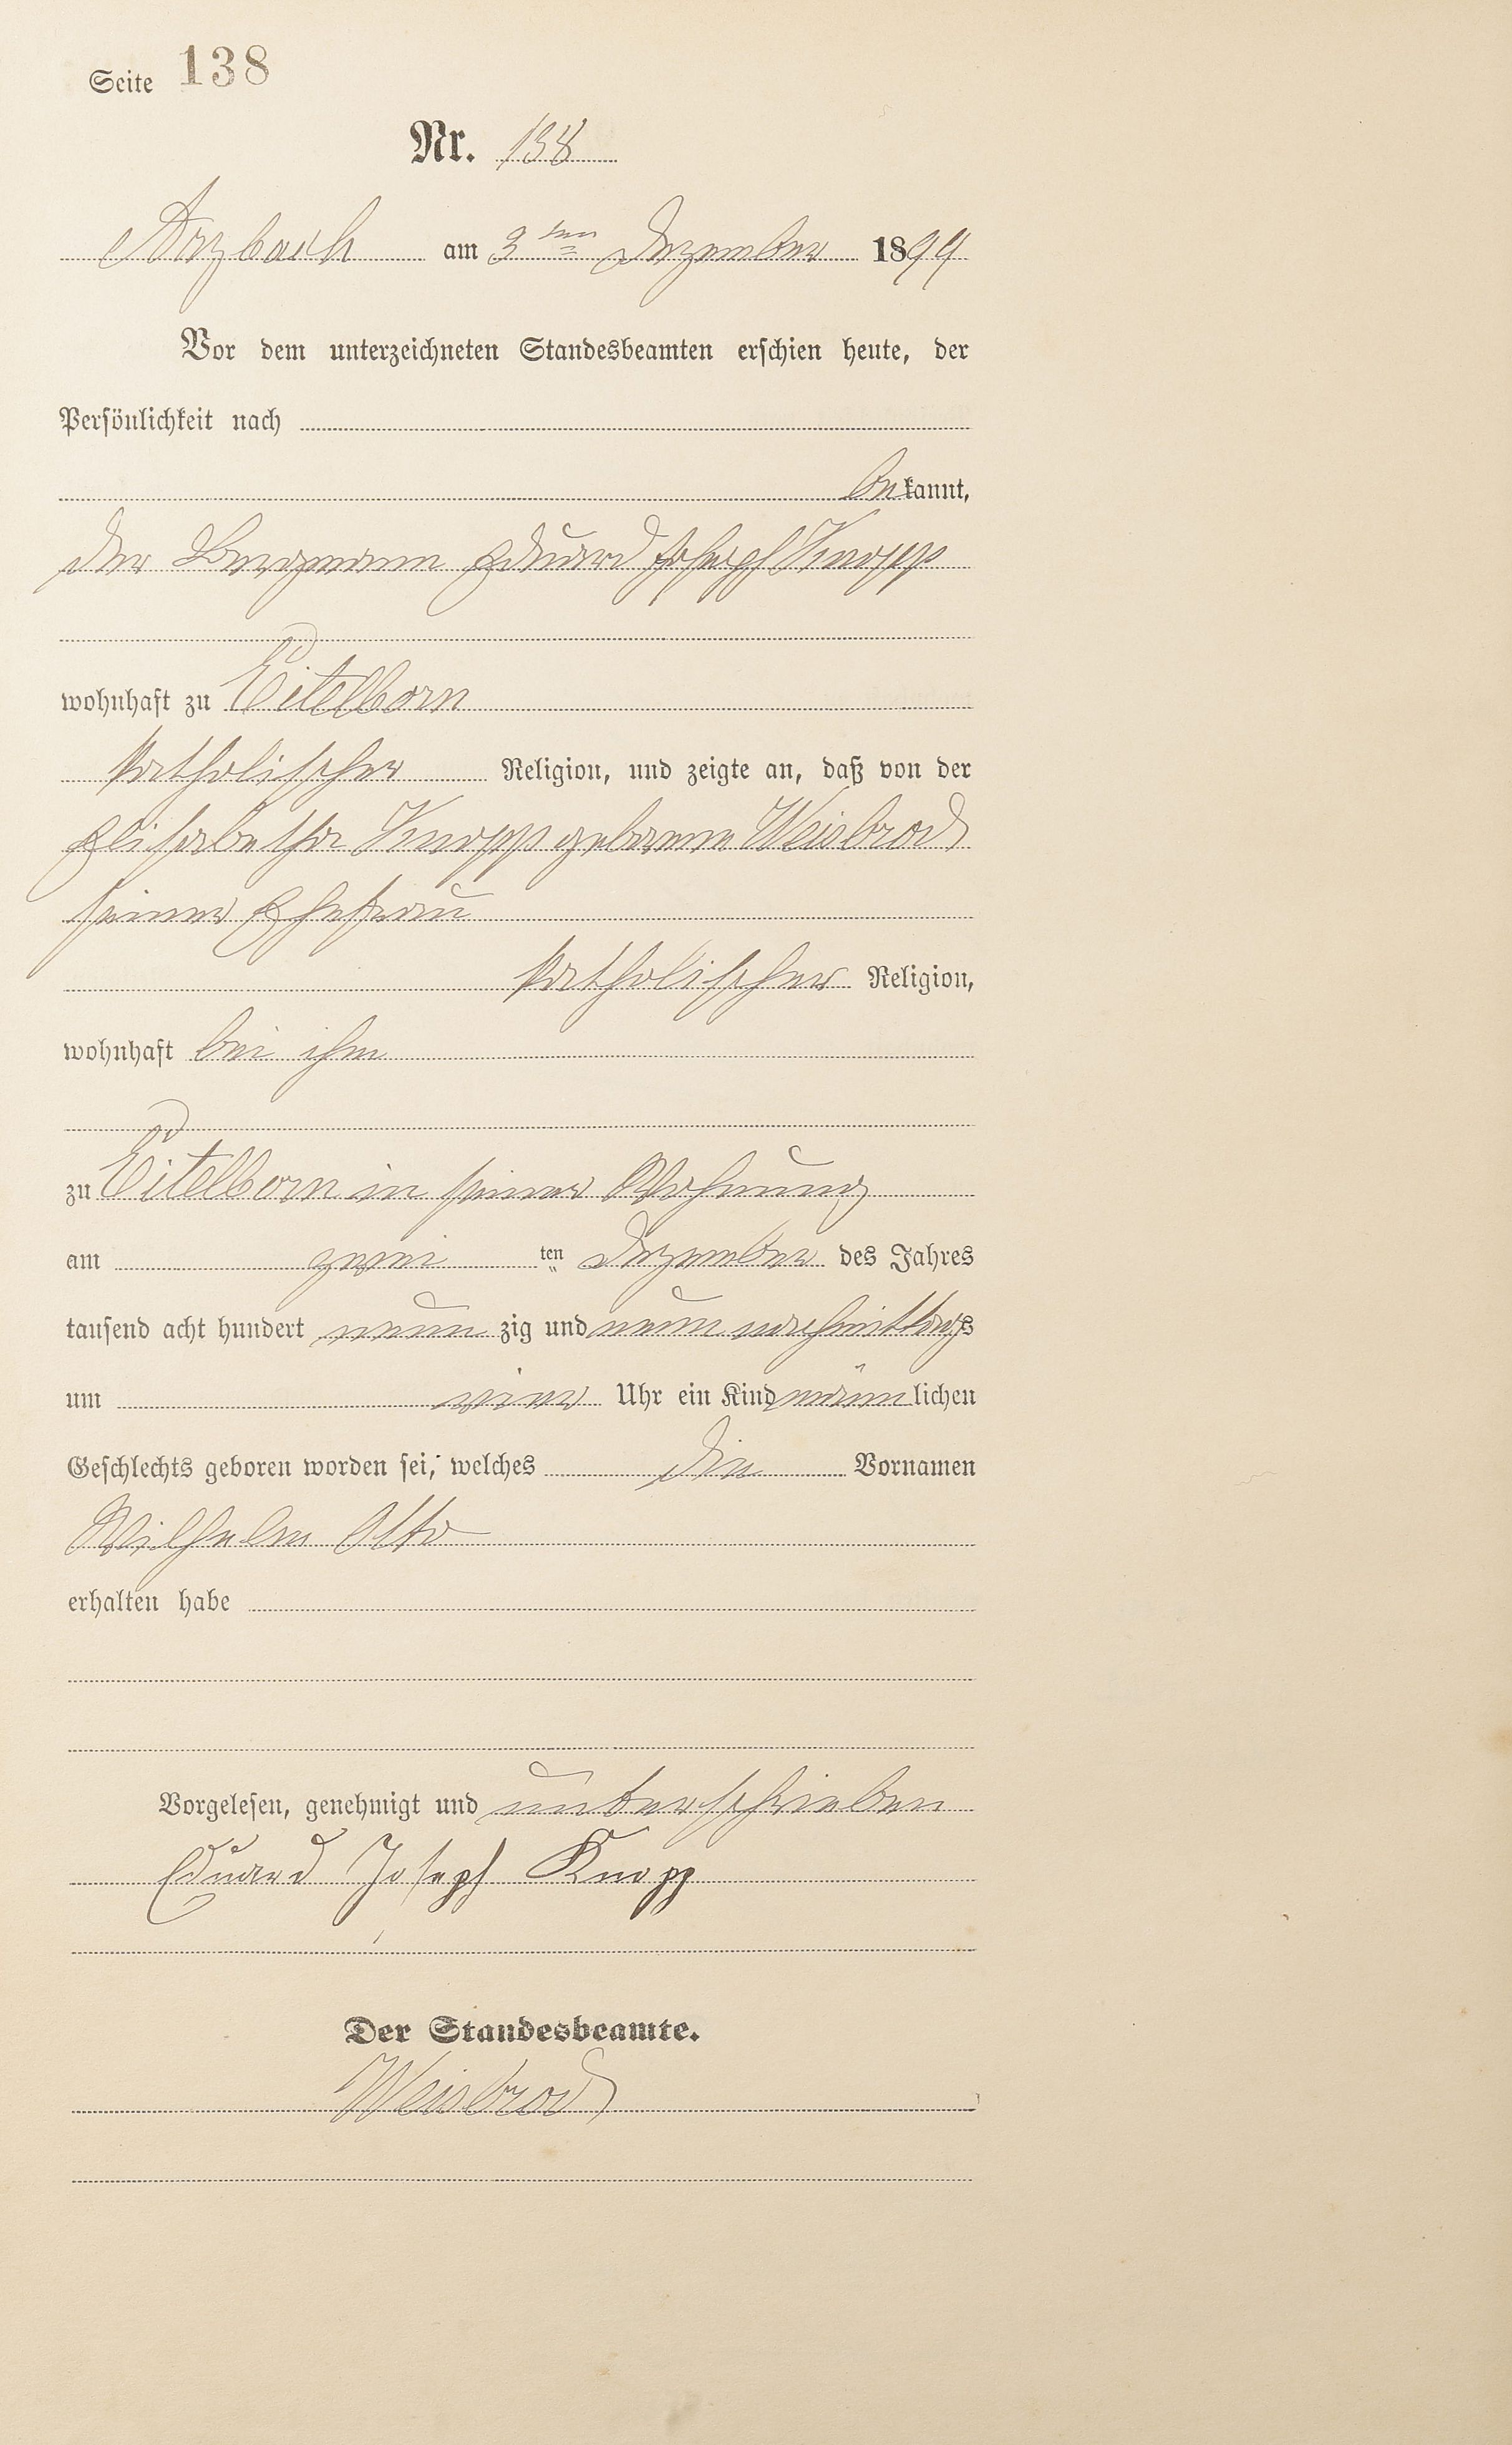 Seite 138
Nr. 138
Arzbach am 3ten Dezember 1899
Vor dem unterzeichneten Standesbeamten erschien heute, der
Persönlichkeit nach
bekannt,
der Bergmann Eduard Joseph Knopp
wohnhaft zu Eitelborn
katholischer Religion, und zeigte an, daß von der
Elisabetha Knopp geborene Weisbrod
seiner Ehefrau
katholischer Religion,
wohnhaft bei ihm
zu Eitelborn in seiner Wohnung
am zwei ten Dezember des Jahres
tausend acht hundert neun zig und neun nachmittags
um vier Uhr ein Kind männlichen
Geschlechts geboren worden sei, welches die Vornamen
Wilhelm Otto
erhalten habe
Vorgelesen, genehmigt und unterschrieben
Eduard Joseph Knopp
Der Standesbeamte.
Weisbrod